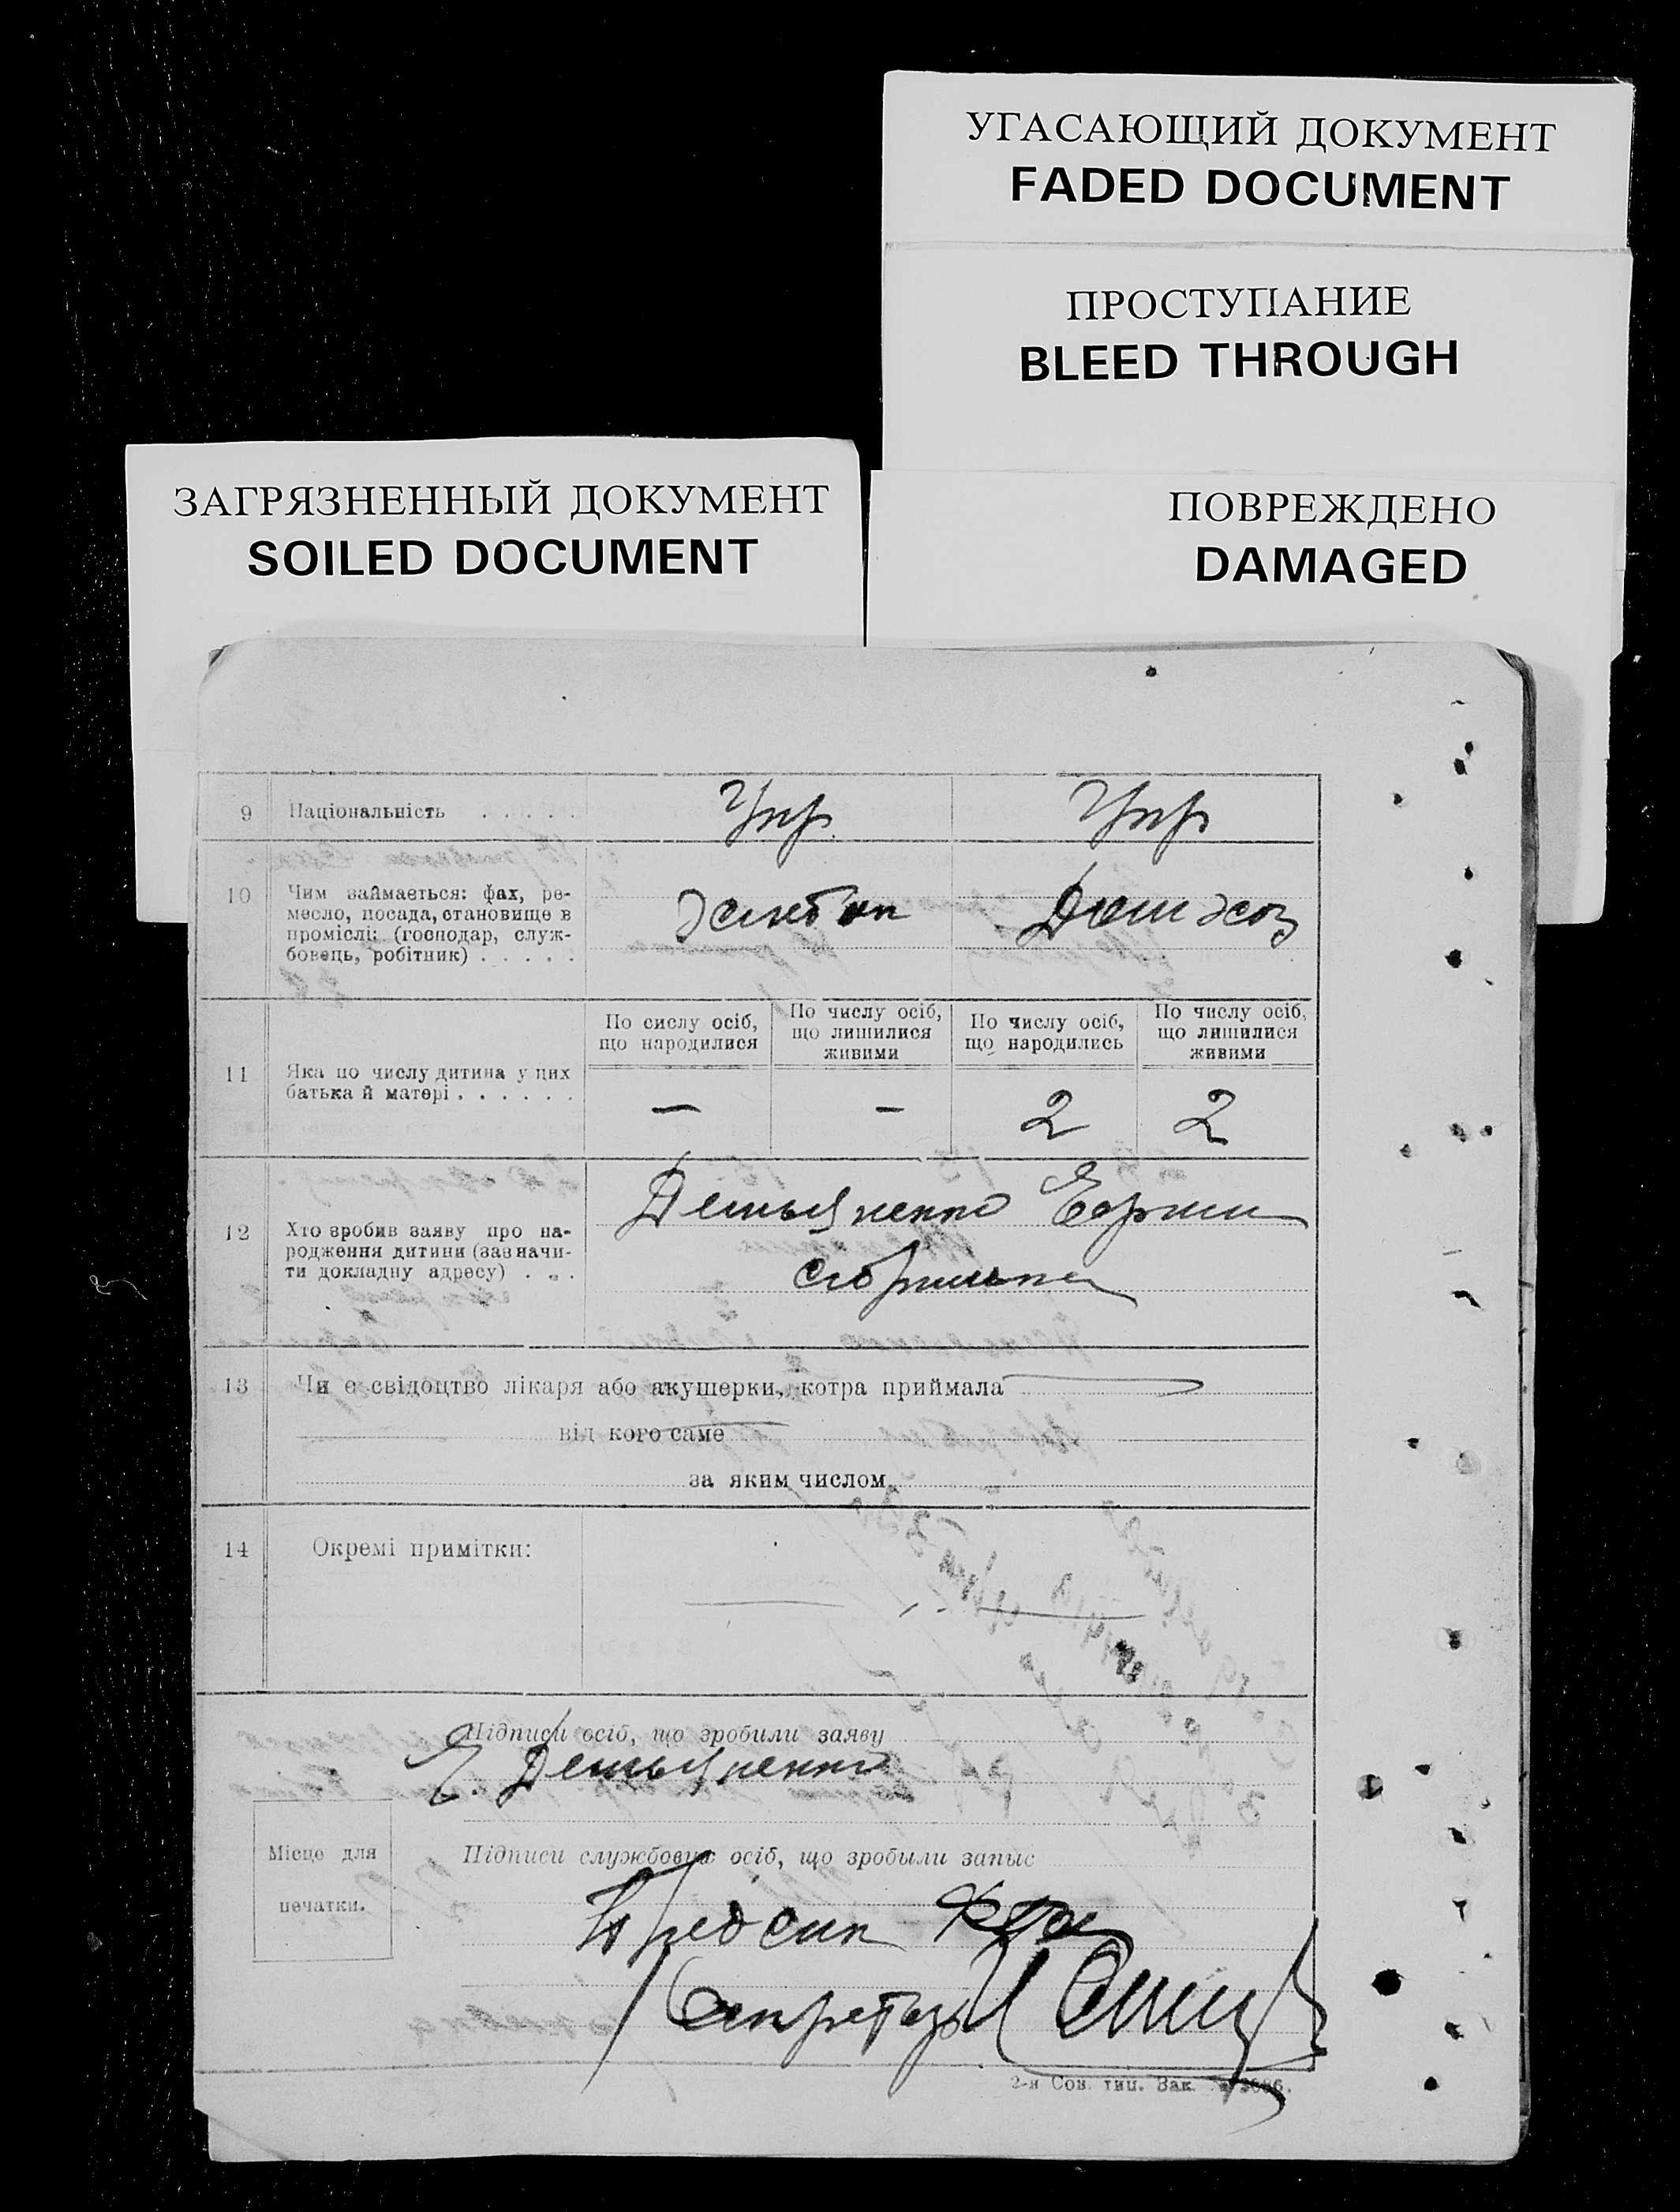 УГАСАЮЩИЙ ДОКУМЕНТ
FADED DOCUMENT
ПРОСТУПАНИЕ
BLEED THROUGH
ЗАГРЯЗНЕННЫЙ ДОКУМЕНТ
SOILED DOCUMENT
ПОВРЕЖДЕНО
DAMAGED
9 Національність . . . . . Укр. Укр
10 Чим займається: фах, ре-
месло, посада, становище в
проміслі: (господар, служ-
бовець, робітник) . . . . .
хлібоп Дом хоз
11 Яка по числу дитина у цих
батька й матері . . . . . .
По сислу осіб,
що народилися
По числу осіб,
що лишилися
живими
По числу осіб,
що народились
По числу осіб,
що лишилися
живими
— — 2 2
12 Хто зробив заяву про на-
родження дитини (зазначи-
ти докладну адресу) . . .
Демьяненко
13 Чи є свідоцтво лікаря або акушерки, котра приймала
від кого саме
за яким числом
14 Окремі примітки:
Підписи осіб, що зробили заяву
Е. Демьяненко
Місце для
печатки.
Підписи службових осіб, що зробыли запыс
Предсик
Секретарь
2-я Сов. тип. Зак. №